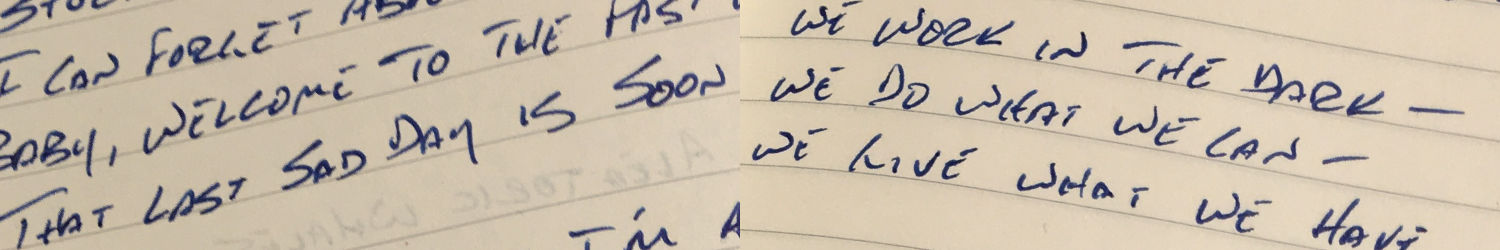 I CAN FORGET
BABY, WELCOME TO THE
THAT LAST SAD DAY IS SOON
I'M A
WE WORK IN THE DARK —
WE DO WHAT WE CAN —
WE LIVE WHAT WE HAVE